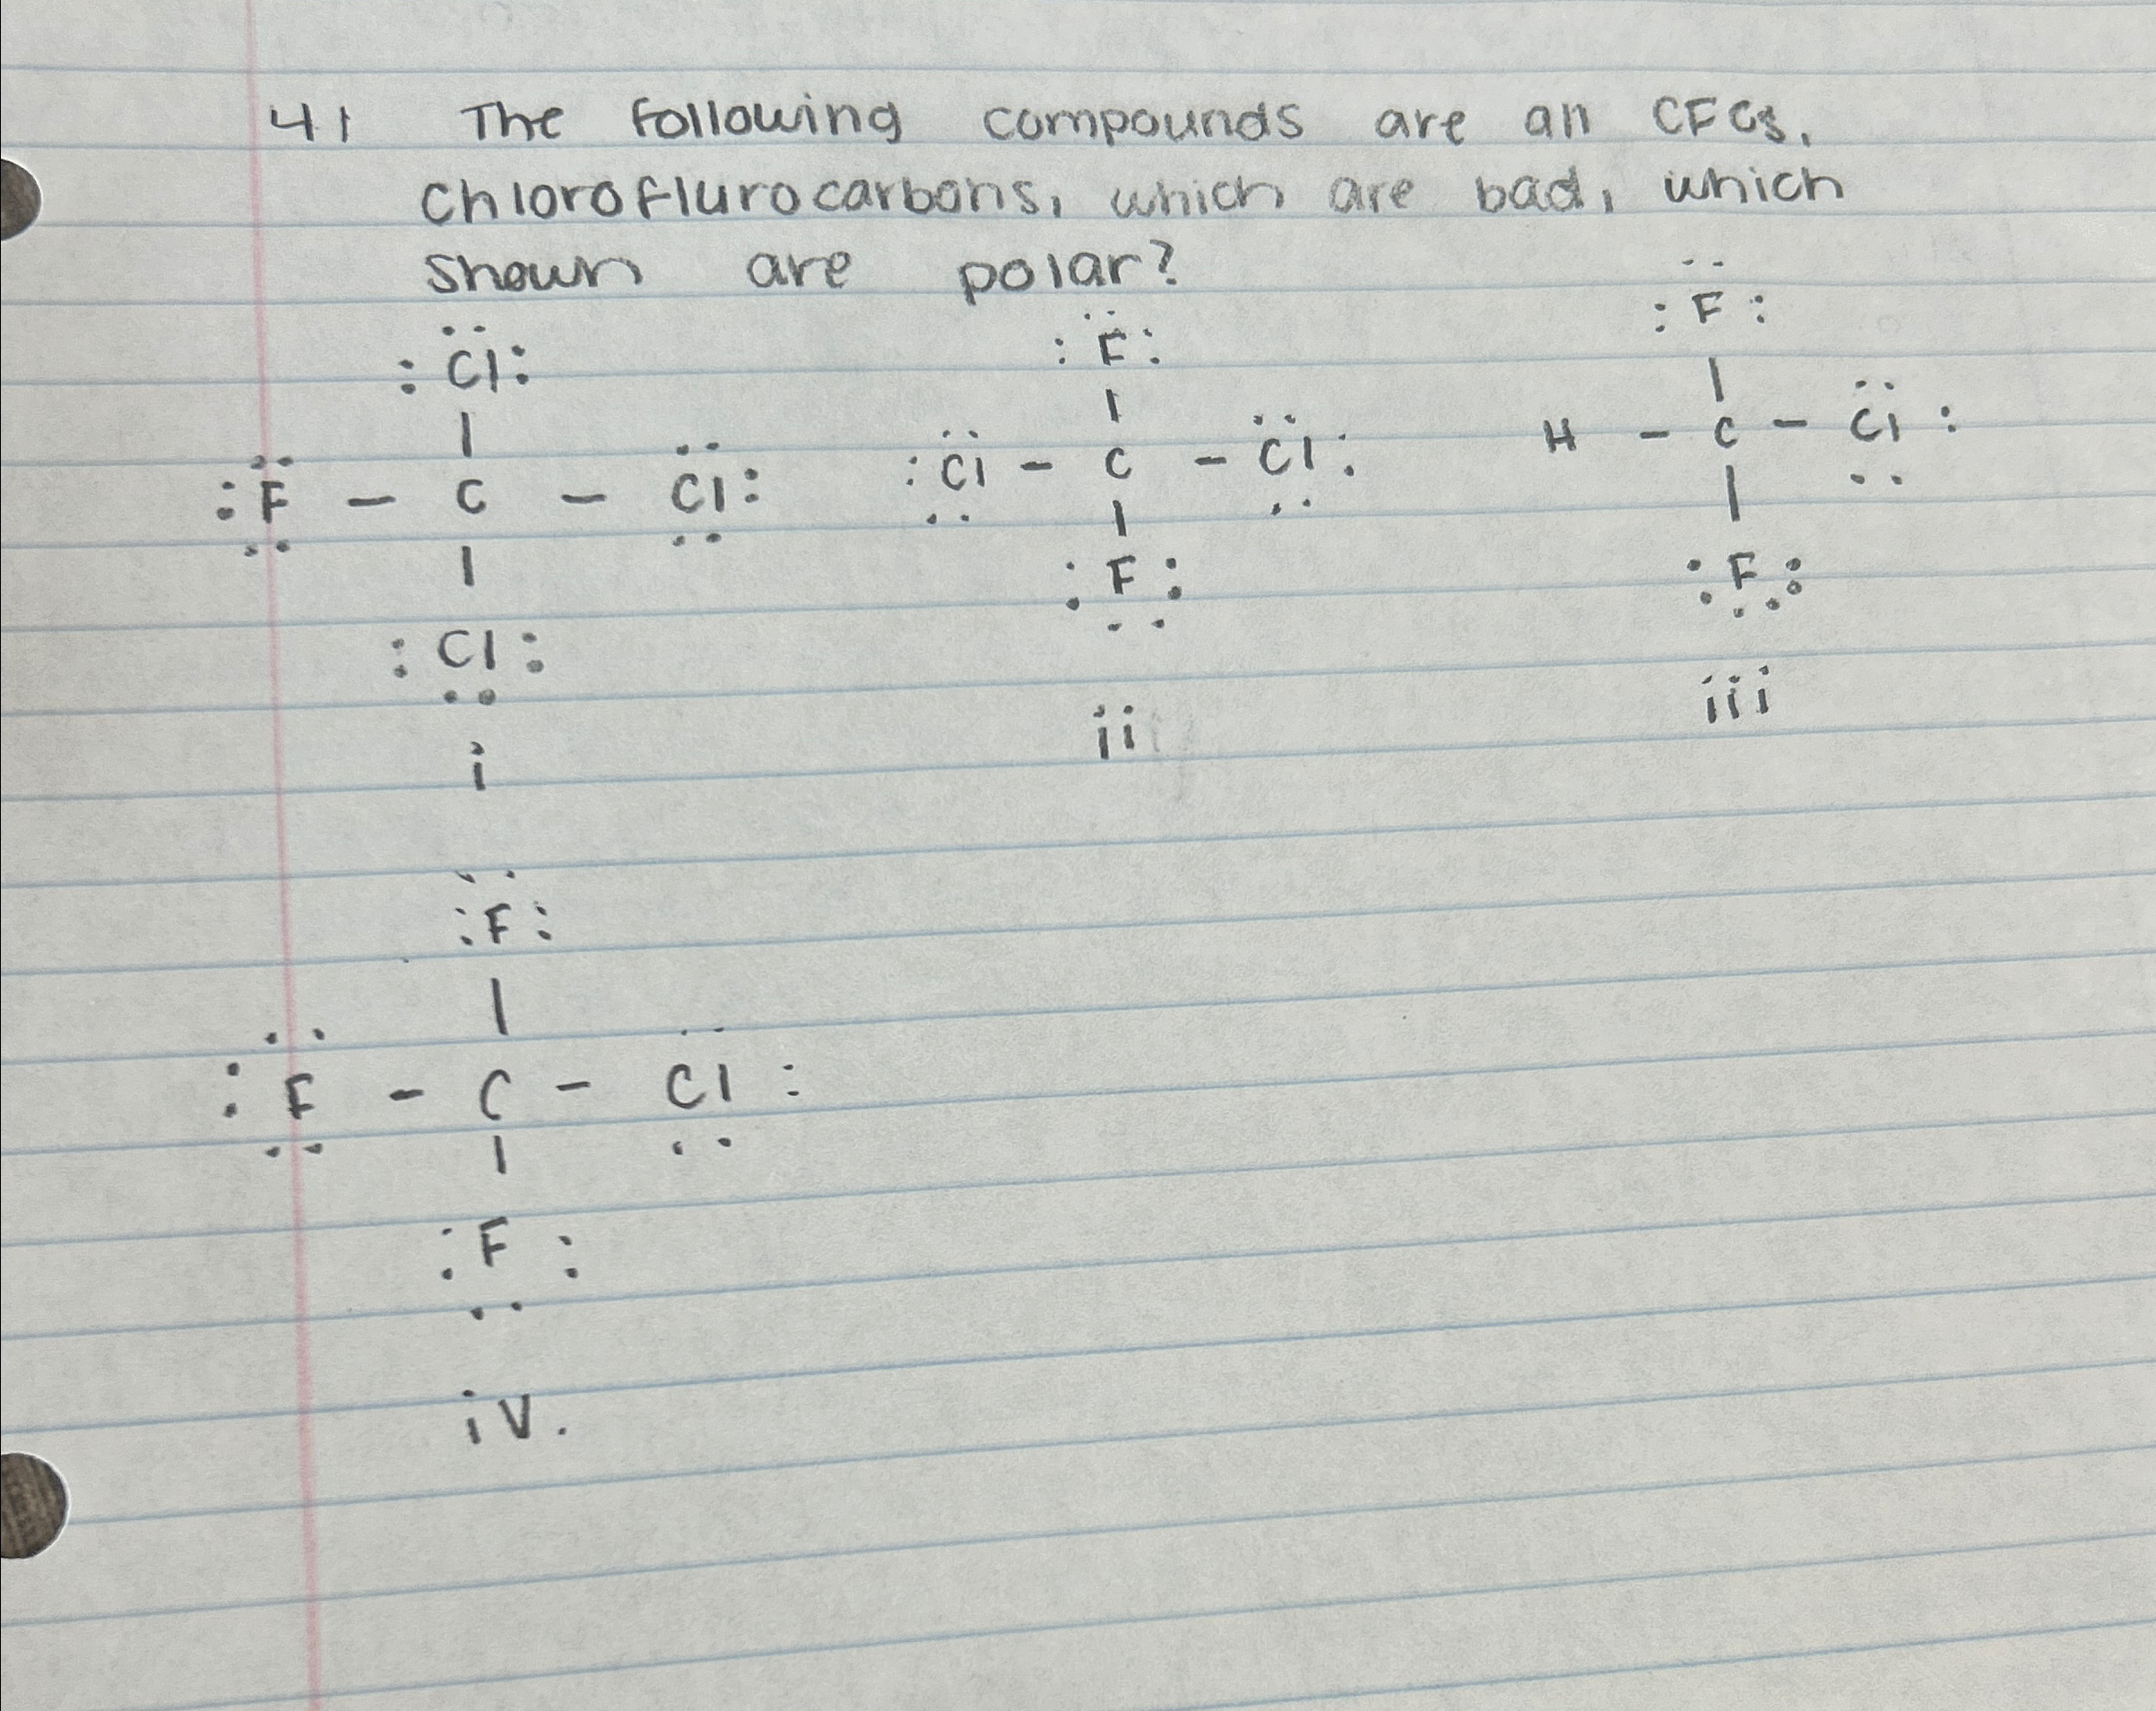 41 The following compounds are all CFCs,
chloroflurocarbons, which are bad, which
shown are polar?
:F:
:Cl: :F:
| |
| H - C - Cl:
:F - C - Cl: :Cl - C - Cl: |
| | :F:
:F:
:Cl: iii
i ii
:F:
|
:F - C - Cl:
|
:F:
iv.